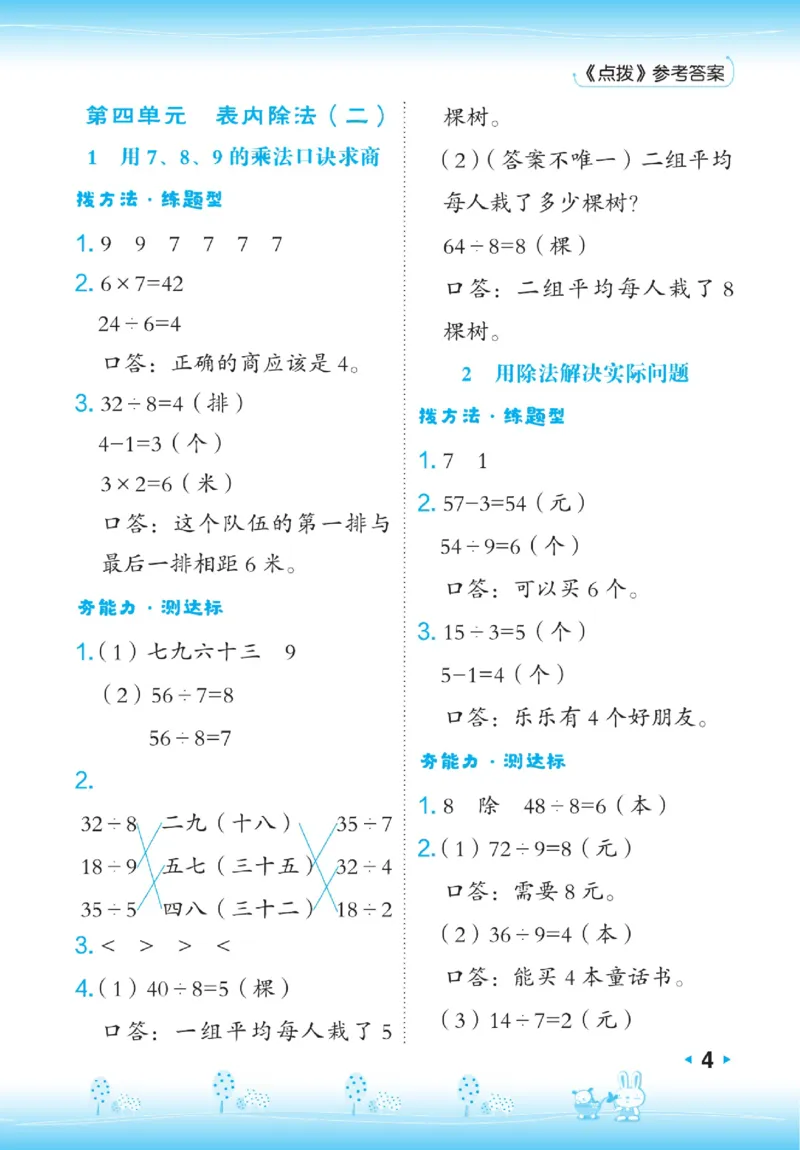 《点拨》参考答案
第四单元 表内除法(二)
1 用7、8、9的乘法口诀求商
拨方法·练题型
1. 9 9 7 7 7 7
2. 6×7=42
24÷6=4
口答:正确的商应该是4。
3. 32÷8=4(排)
4-1=3(个)
3×2=6(米)
口答:这个队伍的第一排与
最后一排相距6米。
夯能力·测达标
1.(1)七九六十三 9
(2)56÷7=8
56÷8=7
2.
32÷8 二九(十八) 35÷7
18÷9 五七(三十五) 32÷4
35÷5 四八(三十二) 18÷2
3. < > > <
4.(1)40÷8=5(棵)
口答:一组平均每人栽了5
棵树。
(2)(答案不唯一)二组平均
每人栽了多少棵树?
64÷8=8(棵)
口答:二组平均每人栽了8
棵树。
2 用除法解决实际问题
拨方法·练题型
1. 7 1
2. 57-3=54(元)
54÷9=6(个)
口答:可以买6个。
3. 15÷3=5(个)
5-1=4(个)
口答:乐乐有4个好朋友。
夯能力·测达标
1. 8 除 48÷8=6(本)
2.(1)72÷9=8(元)
口答:需要8元。
(2)36÷9=4(本)
口答:能买4本童话书。
(3)14÷7=2(元)
4